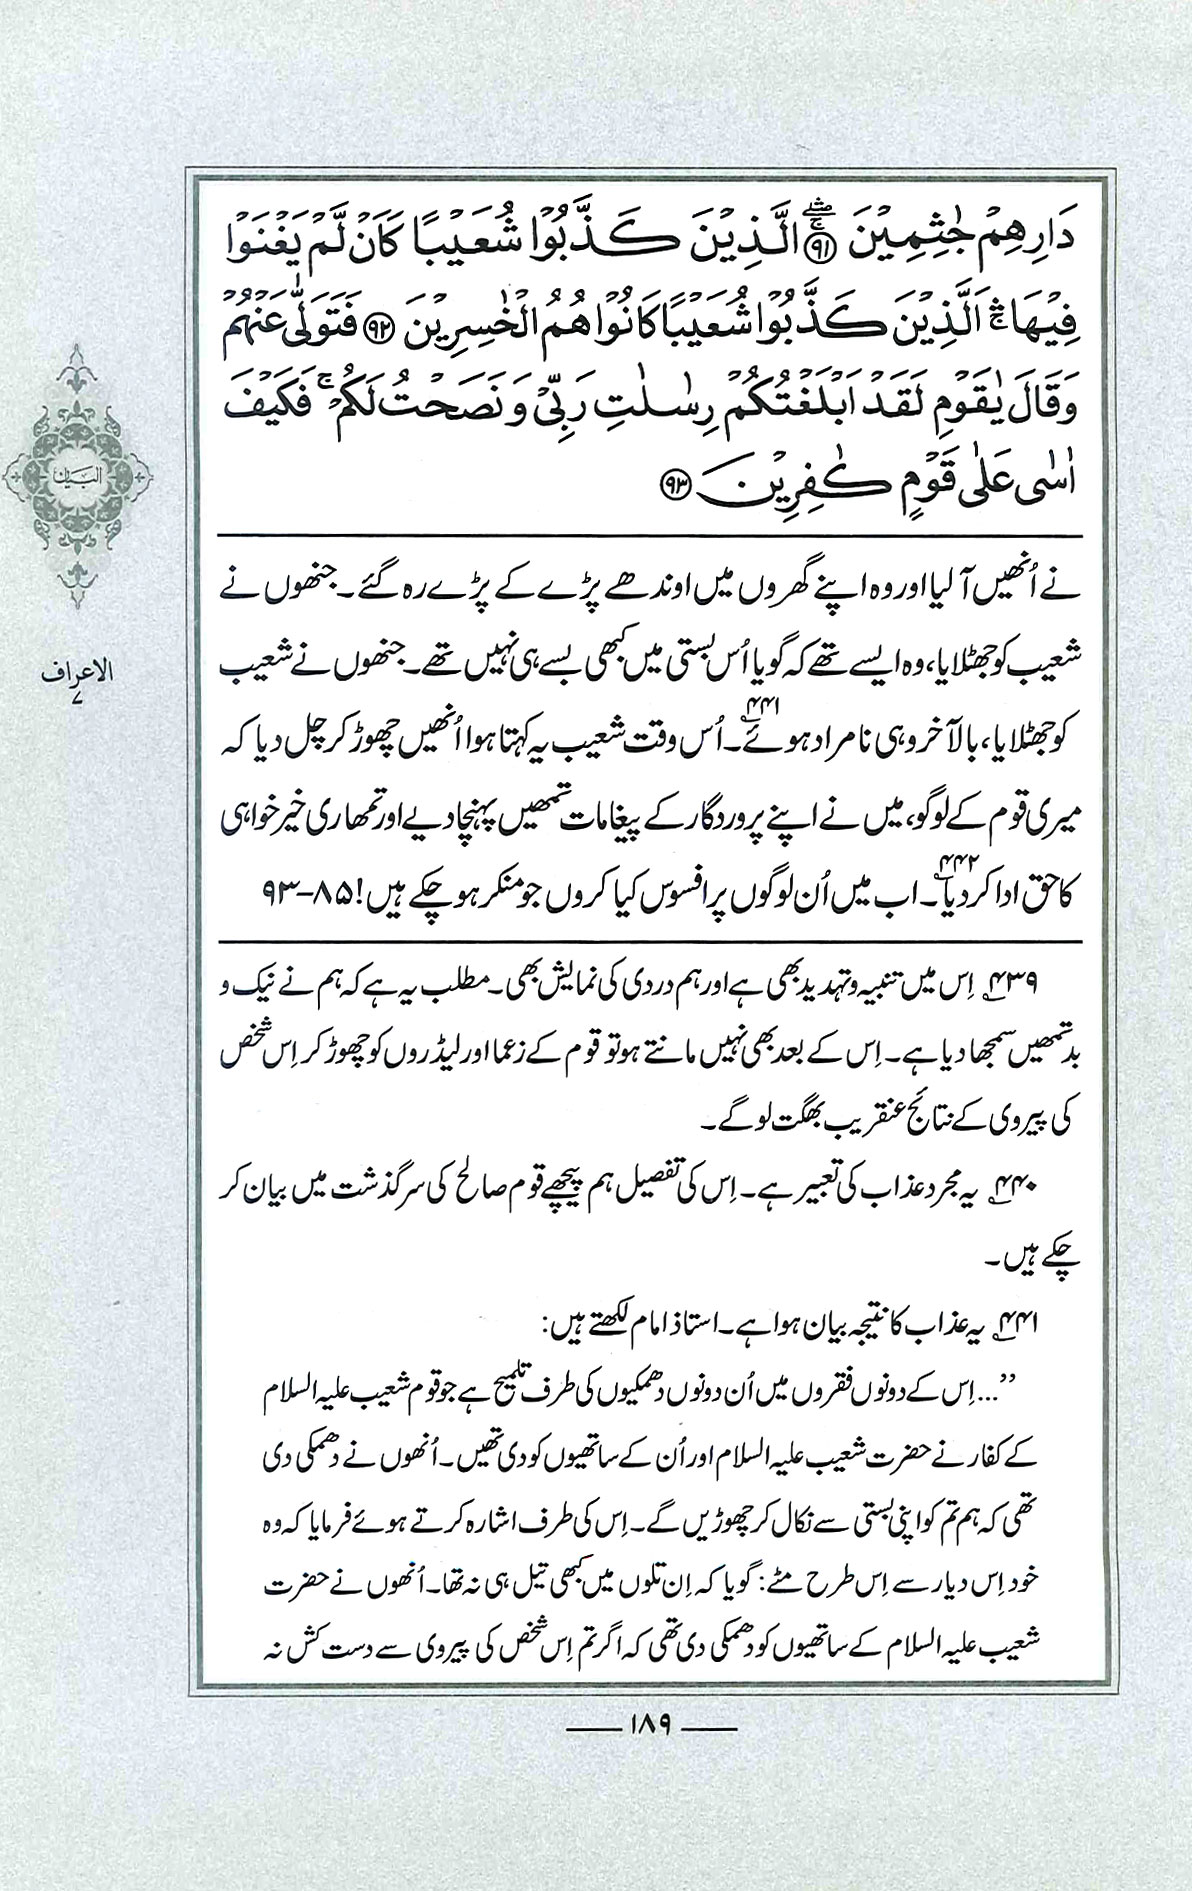 دَارِهِمۡ جٰثِمِيۡنَ ﴿۹۱﴾ الَّذِيۡنَ كَذَّبُوۡا شُعَيۡبًا كَاَنۡ لَّمۡ يَغۡنَوۡا
فِيۡهَا ۛۚ اَلَّذِيۡنَ كَذَّبُوۡا شُعَيۡبًا كَانُوۡا هُمُ الۡخٰسِرِيۡنَ ﴿۹۲﴾ فَتَوَلّٰى عَنۡهُمۡ
وَقَالَ يٰقَوۡمِ لَقَدۡ اَبۡلَغۡتُكُمۡ رِسٰلٰتِ رَبِّىۡ وَنَصَحۡتُ لَكُمۡ ۚ فَكَيۡفَ
اٰسٰى عَلٰى قَوۡمٍ كٰفِرِيۡنَ ﴿۹۳﴾
نے اُنھیں آ لیا اور وہ اپنے گھروں میں اوندھے پڑے کے پڑے رہ گئے۔ جنھوں نے
شعیب کو جھٹلایا، وہ ایسے تھے کہ گویا اُس بستی میں کبھی بسے ہی نہیں تھے۔ جنھوں نے شعیب
کو جھٹلایا، بالآخر وہی نامراد ہوئے۴۴۱۔ اُس وقت شعیب یہ کہتا ہوا اُنھیں چھوڑ کر چل دیا کہ
میری قوم کے لوگو، میں نے اپنے پروردگار کے پیغامات تمھیں پہنچا دیے اور تمھاری خیرخواہی
کا حق ادا کر دیا۴۴۲۔ اب میں اُن لوگوں پر افسوس کیا کروں جو منکر ہو چکے ہیں! ۸۵-۹۳
۴۳۹؂ اِس میں تنبیہ و تہدید بھی ہے اور ہم دردی کی نمایش بھی۔ مطلب یہ ہے کہ ہم نے نیک و
بد تمھیں سمجھا دیا ہے۔ اِس کے بعد بھی نہیں مانتے ہو تو قوم کے زعما اور لیڈروں کو چھوڑ کر اِس شخص
کی پیروی کے نتائج عنقریب بھگت لو گے۔
۴۴۰؂ یہ مجرد عذاب کی تعبیر ہے۔ اِس کی تفصیل ہم پیچھے قوم صالح کی سرگذشت میں بیان کر
چکے ہیں۔
۴۴۱؂ یہ عذاب کا نتیجہ بیان ہوا ہے۔ استاذ امام لکھتے ہیں:
”...اِس کے دونوں فقروں میں اُن دونوں دھمکیوں کی طرف تلمیح ہے جو قوم شعیب علیہ السلام
کے کفار نے حضرت شعیب علیہ السلام اور اُن کے ساتھیوں کو دی تھیں۔ اُنھوں نے دھمکی دی
تھی کہ ہم تم کو اپنی بستی سے نکال کر چھوڑیں گے۔ اِس کی طرف اشارہ کرتے ہوئے فرمایا کہ وہ
خود اِس دیار سے اِس طرح مٹے: گویا کہ اِن تلوں میں کبھی تیل ہی نہ تھا۔ اُنھوں نے حضرت
شعیب علیہ السلام کے ساتھیوں کو دھمکی دی تھی کہ اگر تم اِس شخص کی پیروی سے دست کش نہ
البیان
الاعراف
۷
۱۸۹